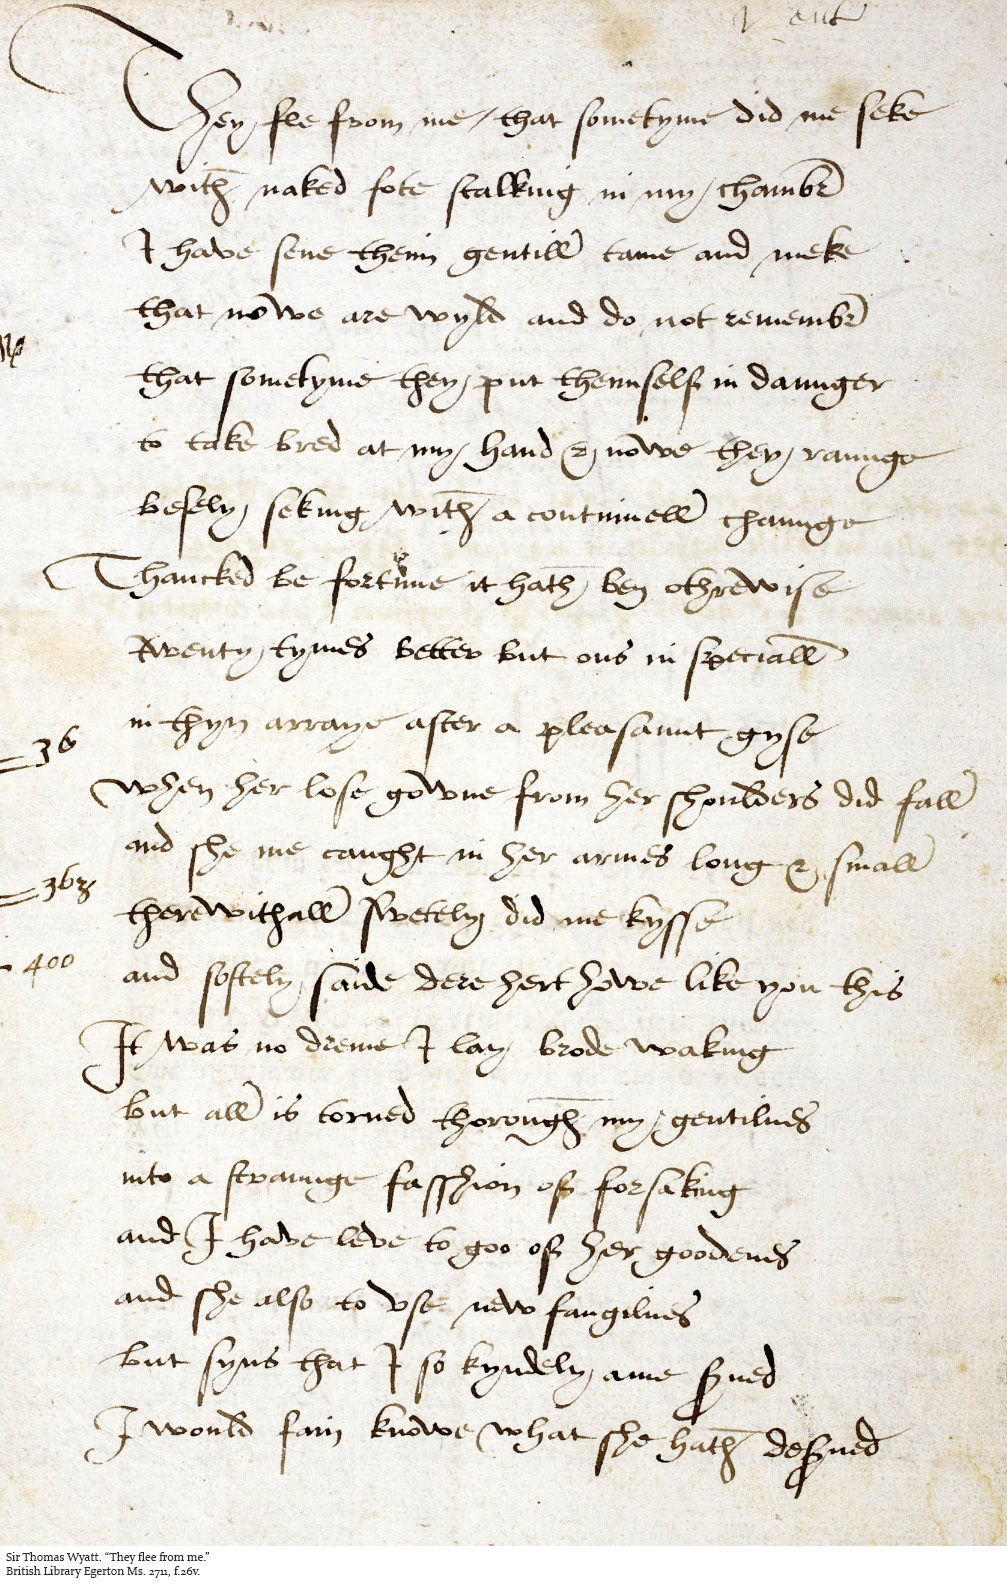 ent
They fle from me / that sometyme did me seke
with naked fote stalking in my chambr
I have sene theim gentill tame and meke
that nowe are wyld and do not remembr
that sometyme they put theimself in daunger
to take bred at my hand & nowe they raunge
besely seking with a continuell chaunge
Thancked be fortune it hath ben othrewise
twenty tymes better but ons in speciall
in thyn arraye after a pleasaunt gyse
36
When her lose gowne from her shoulders did fall
and she me caught in her armes long & small
363
therewithall swetely did me kysse
400
and softely saide dere hert howe like you this
It was no dreme I lay brode waking
but all is torned thorough my gentilnes
into a straunge fasshion of forsaking
and I have leve to goo of her goodenes
and she also to vse new fangilnes
but syns that I so kyndely ame serued
I would fain knowe what she hath deserued
Sir Thomas Wyatt. “They flee from me.”
British Library Egerton Ms. 2711, f.26v.